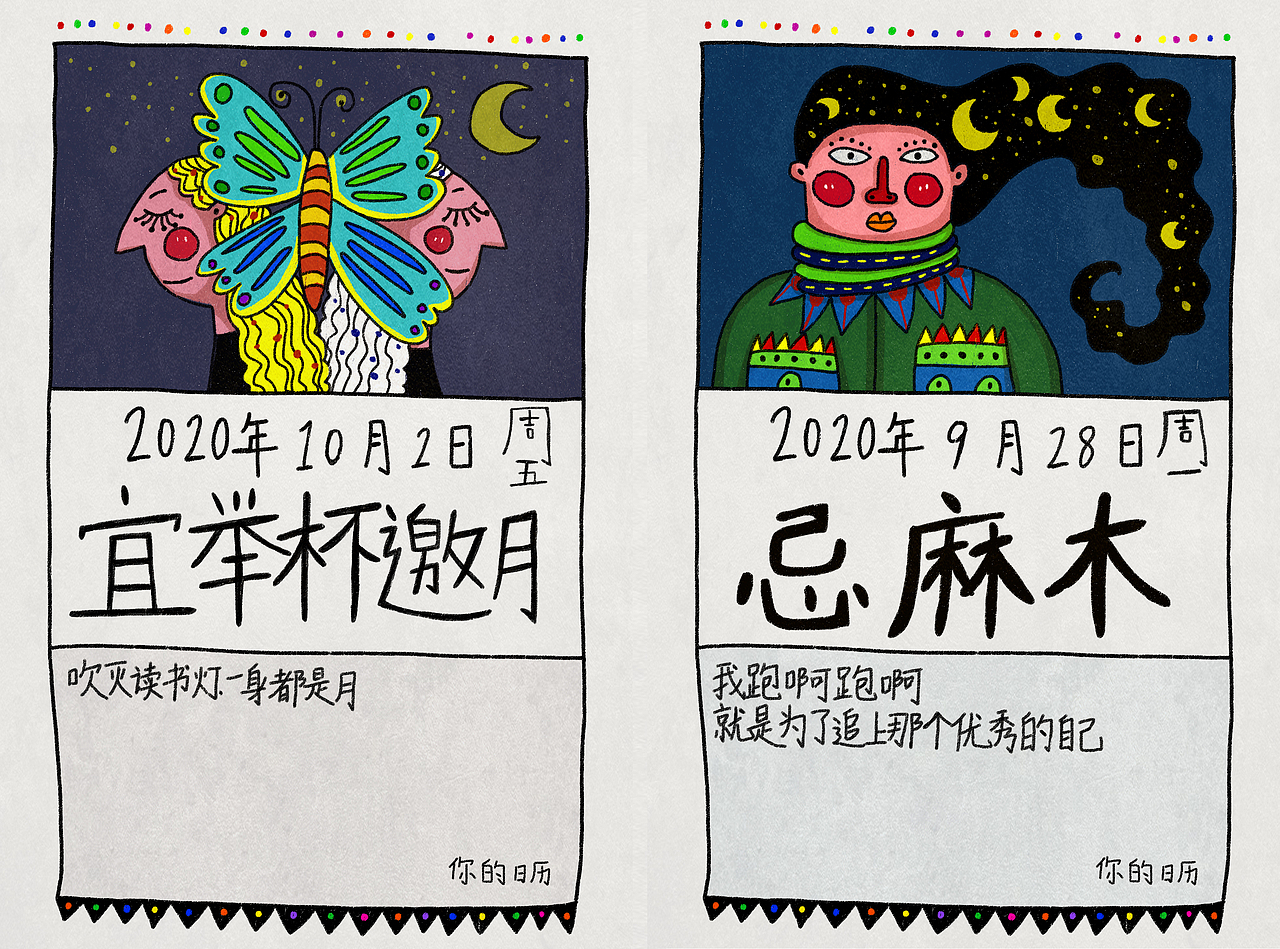 2020年10月2日 周五
宜举杯邀月
吹灭读书灯.一身都是月
你的日历
2020年9月28日 周一
忌麻木
我跑啊跑啊
就是为了追上那个优秀的自己
你的日历